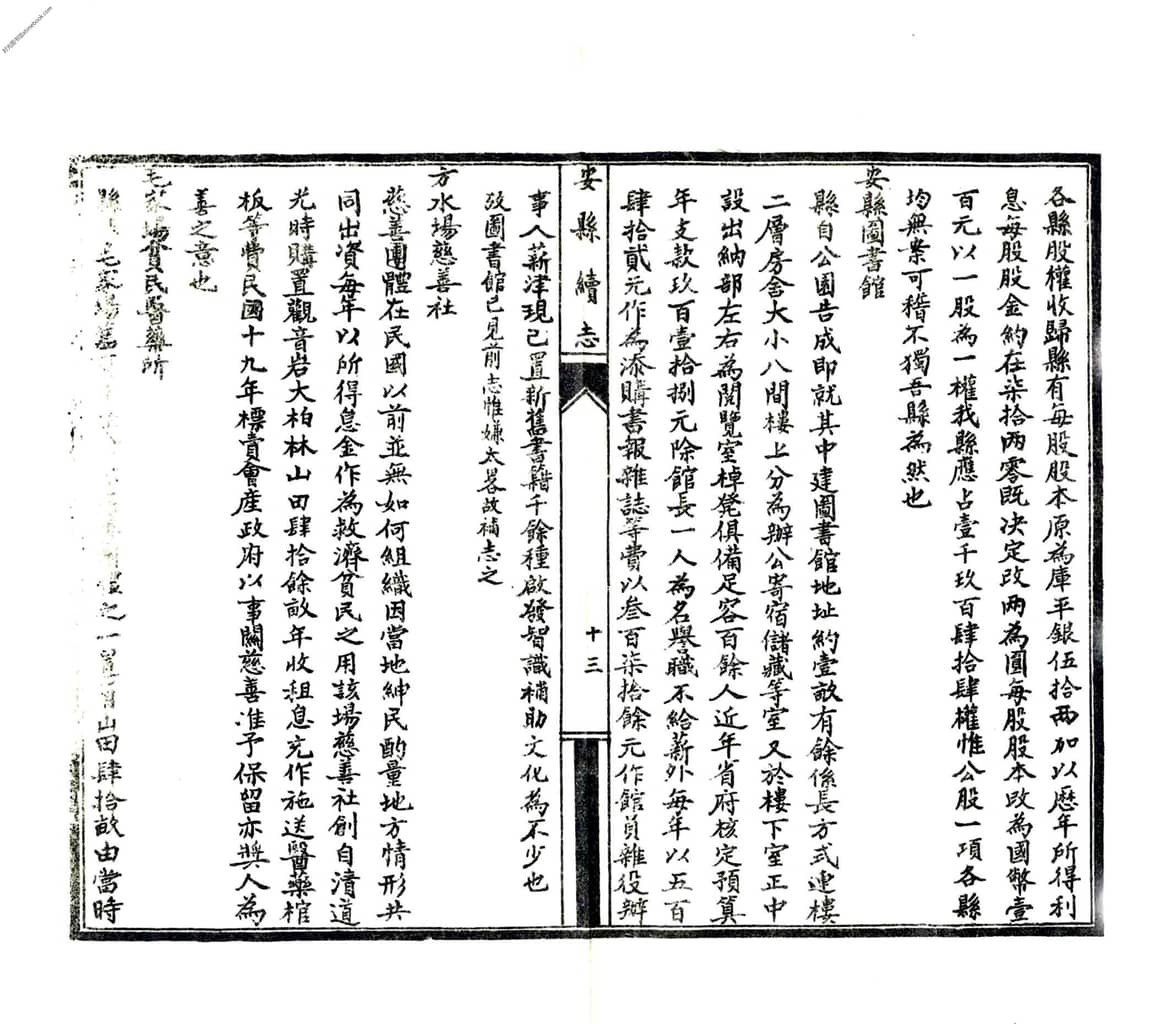 各縣股權收歸縣有每股股本原為庫平銀伍拾兩加以歷年所得利
息每股股金約在柒拾兩零既決定改兩為圓每股股本改為國幣壹
百元以一股為一權我縣應占壹千玖百肆拾肆權惟公股一項各縣
均無案可稽不獨吾縣為然也
安縣圖書館
縣自公園告成即就其中建圖書館地址約壹畝有餘係長方式連樓
二層房舍大小八間樓上分為辦公寄宿儲藏等室又於樓下室正中
設出納部左右為閱覽室棹凳俱備足容百餘人近年省府核定預算
年支款玖百壹拾捌元除館長一人為名譽職不給薪外每年以五百
肆拾貳元作為添購書報雜誌等費以叁百柒拾餘元作館員雜役辦
安縣續志
十三
事人薪津現已置新舊書籍千餘種啟發智識補助文化為不少也
攷圖書館已見前志惟嫌太畧故補志之
方水場慈善社
慈善團體在民國以前並無如何組織因當地紳民酌量地方情形共
同出資每年以所得息金作為救濟貧民之用該場慈善社創自清道
光時購置觀音岩大柏林山田肆拾餘畝年收租息充作施送醫藥棺
板等費民國十九年標賣會產政府以事關慈善准予保留亦獎人為
善之意也
毛家場貧民醫藥所
縣毛家場舊之一置山田肆拾畝由當時
时光图书馆atimebook.com